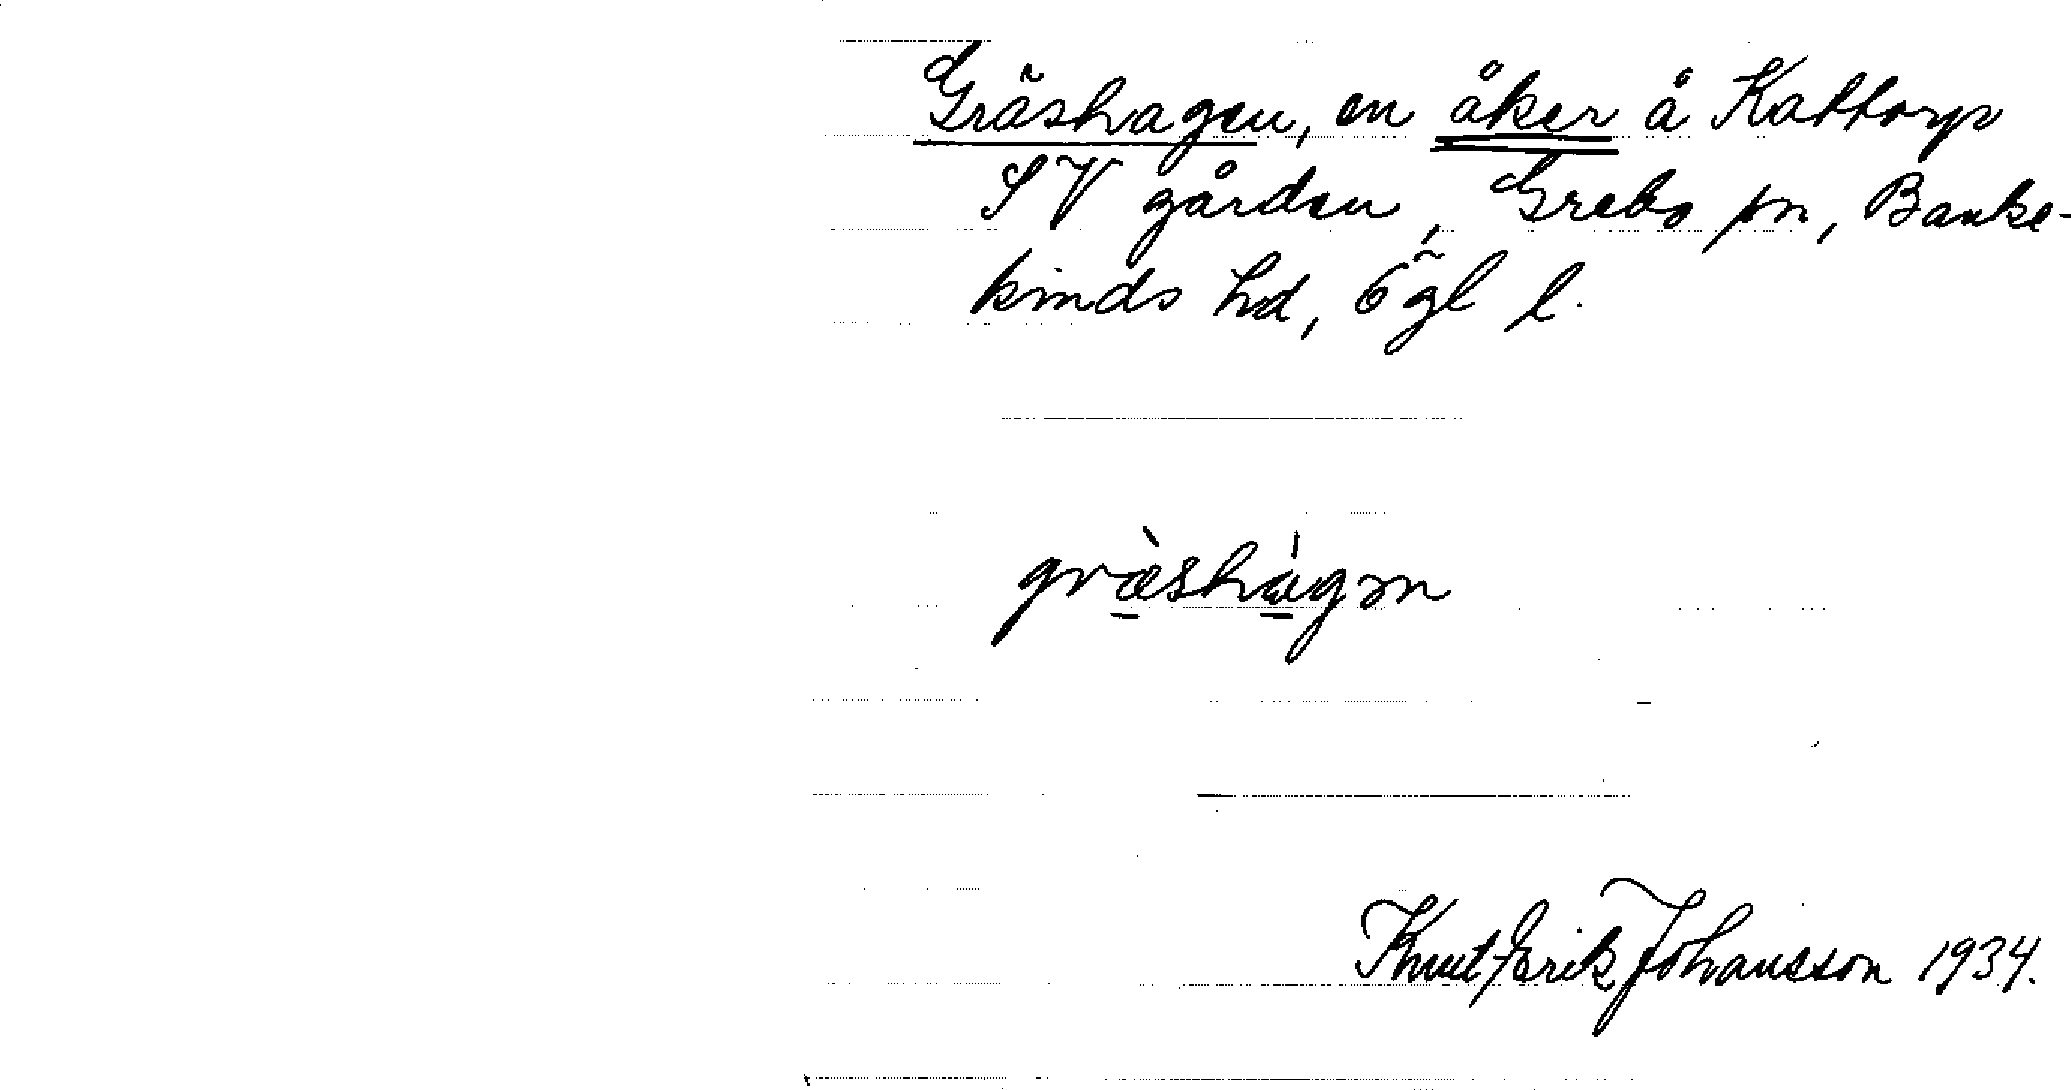 Gräshagen, en åker å Kattorp
SV gården, Grebo sn, Banke-
kinds hd, Ögl l.
græ̀shágən
Knut Erik Johansson 1934.